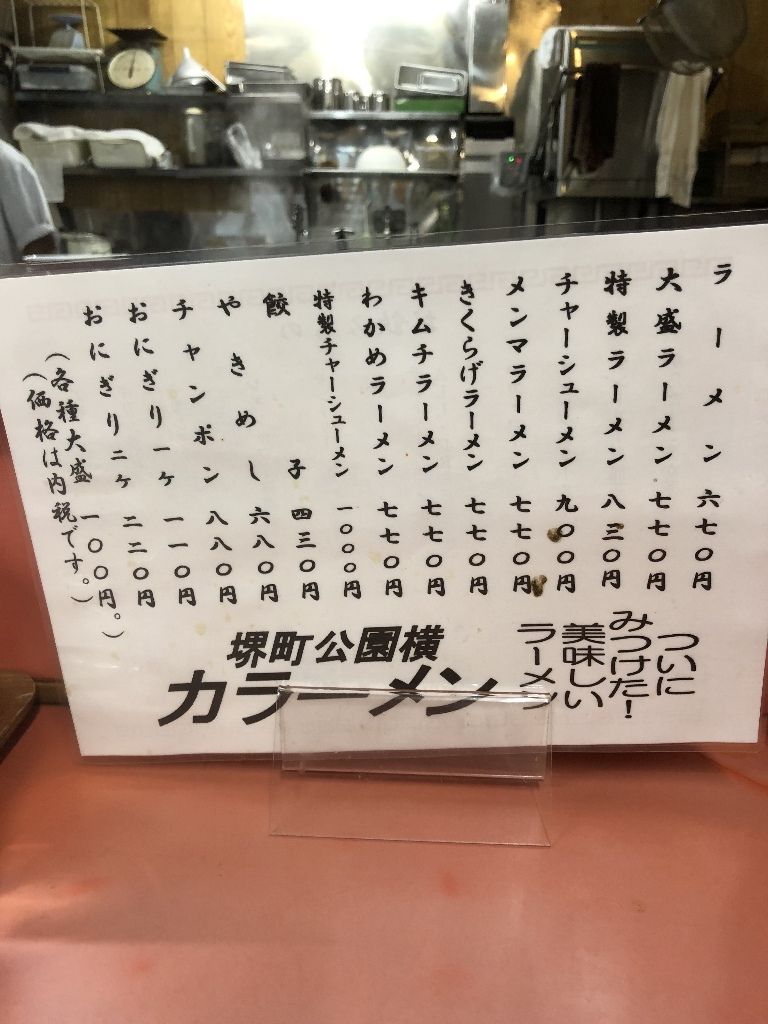 ラーメン 六七〇円
大盛ラーメン 七七〇円
特製ラーメン 八三〇円
チャーシューメン 九〇〇円
メンマラーメン 七七〇円
きくらげラーメン 七七〇円
キムチラーメン 七七〇円
わかめラーメン 七七〇円
特製チャーシューメン 一〇〇〇円
餃子 四三〇円
やきめし 六八〇円
チャンポン 八八〇円
おにぎり一ヶ 一一〇円
おにぎり二ヶ 二二〇円
(各種大盛 一〇〇円。)
(価格は内税です。)
ついに
みつけた!
美味しい
ラーメン
堺町公園横
カラーメン